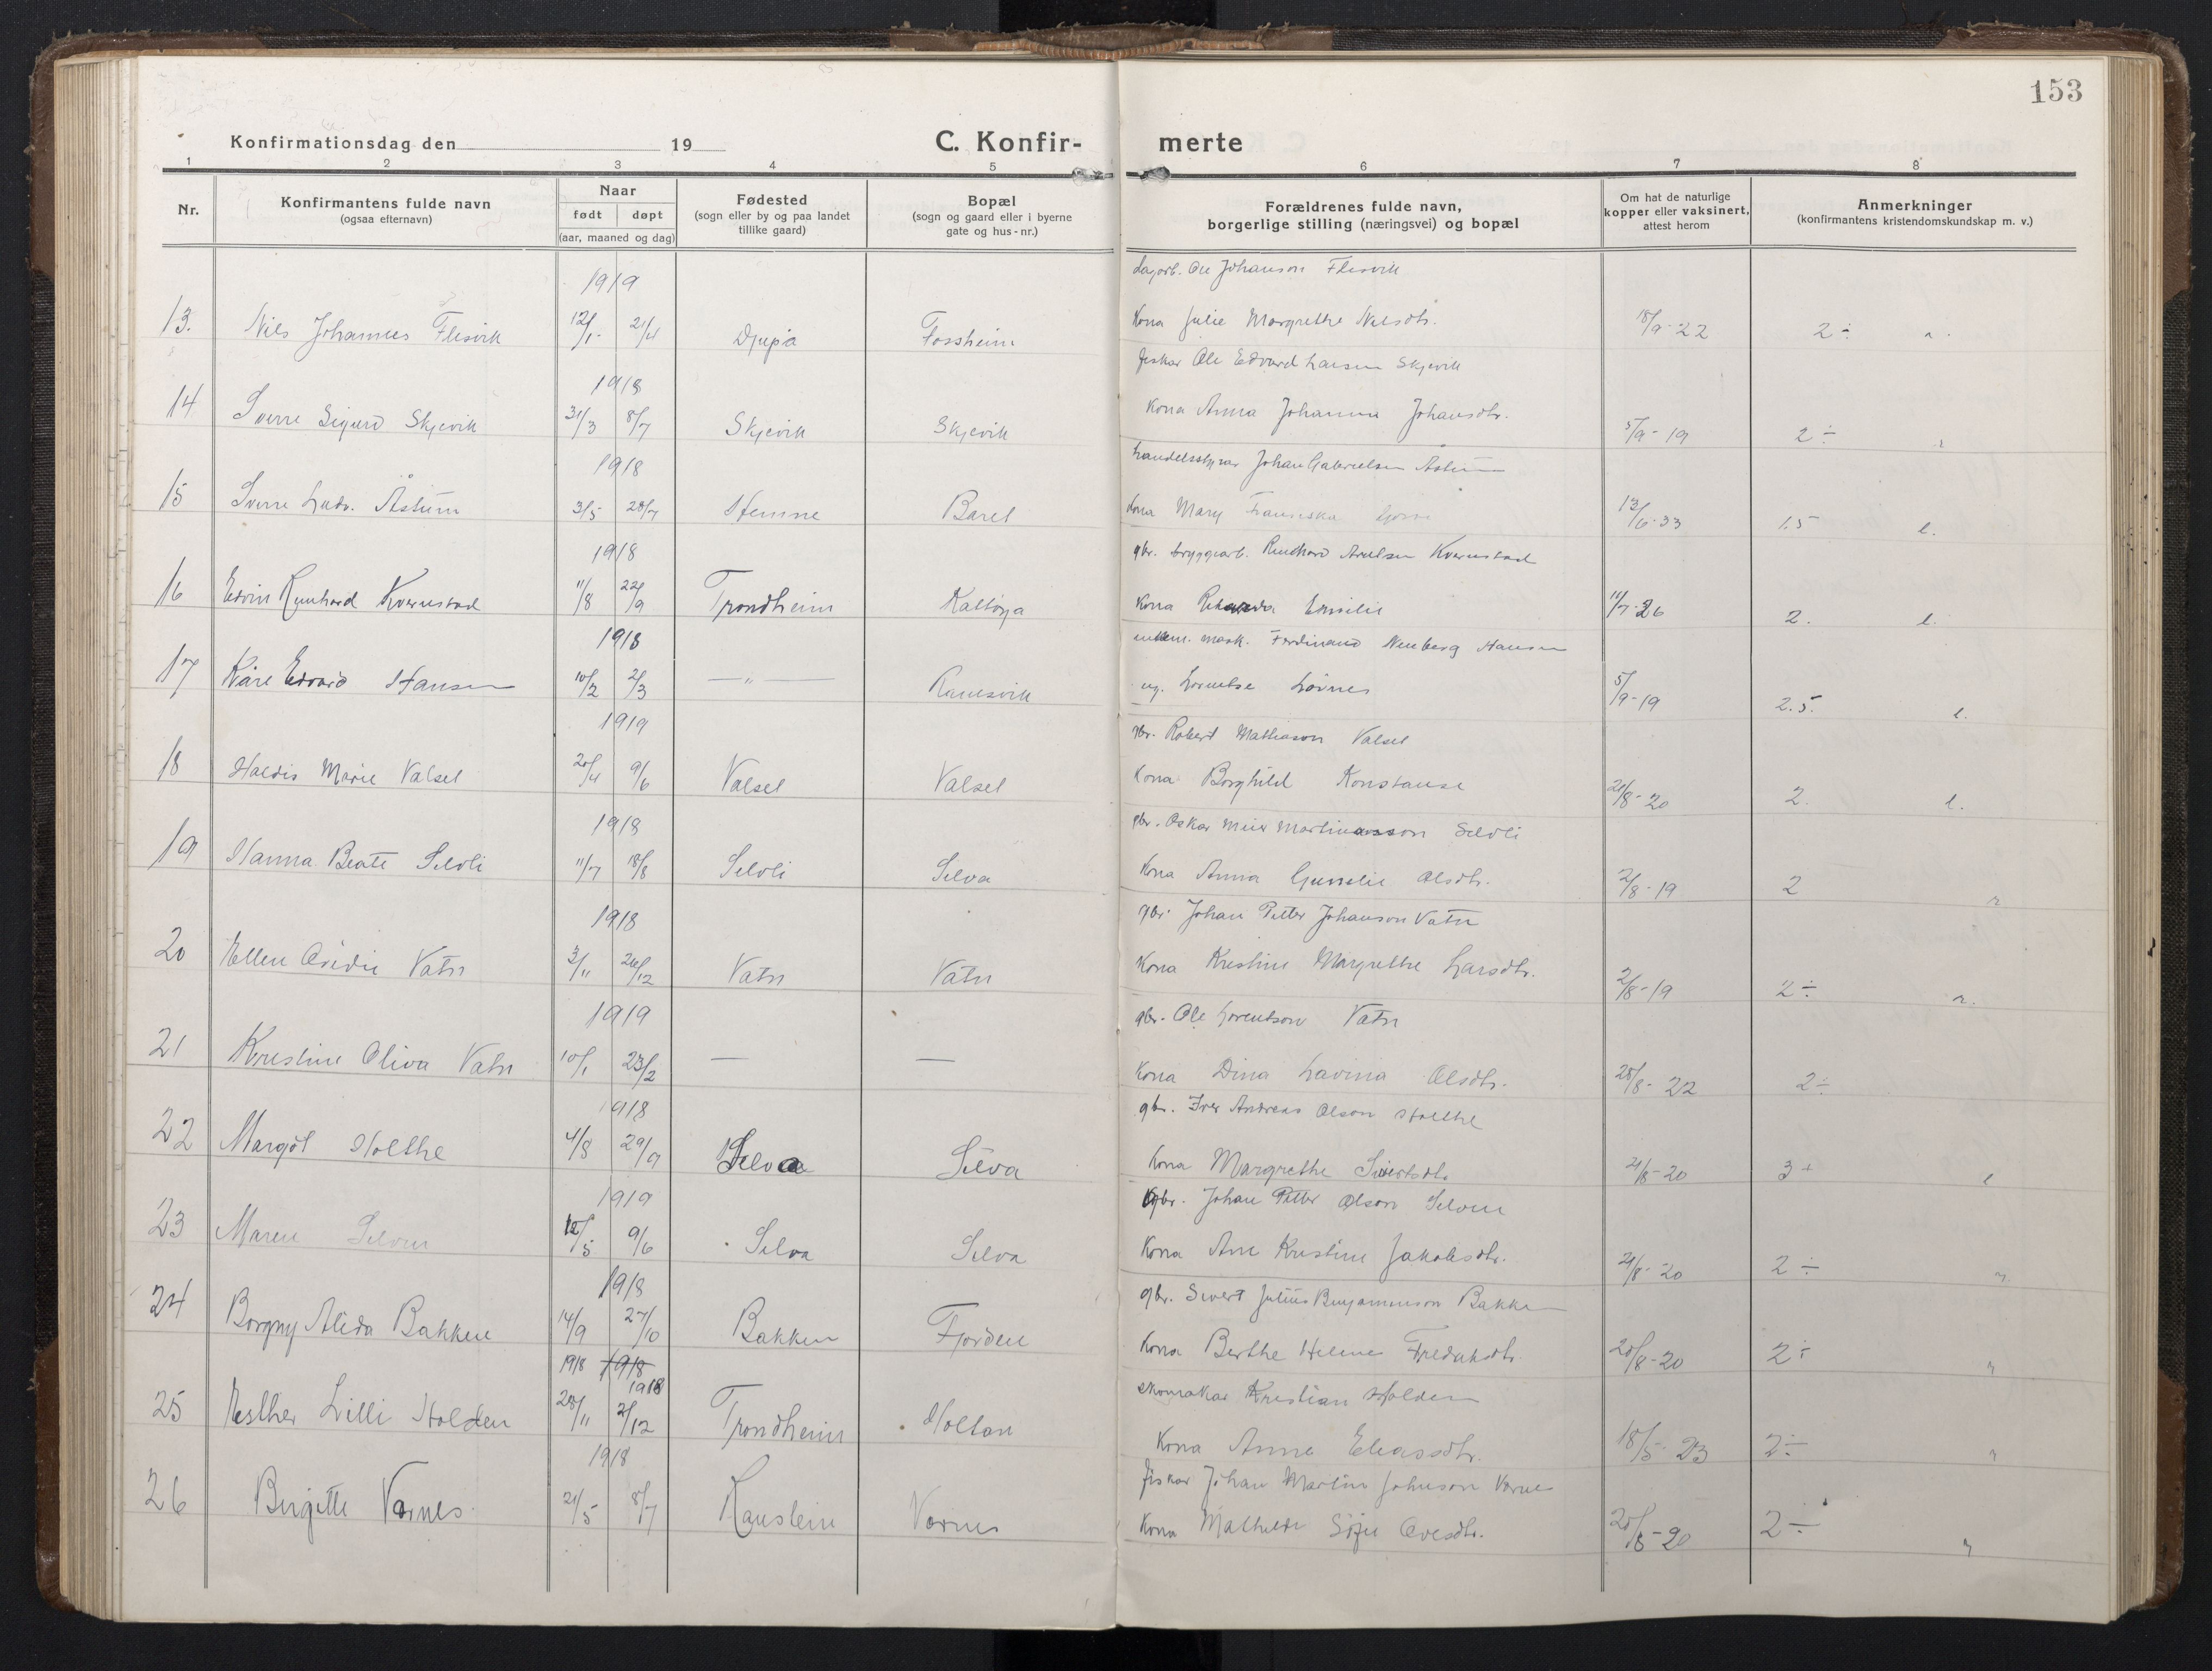 153
Konfirmationsdag den 19
C. Konfir-
merte
1 2 3 4 5 6 7 8
Nr.
Konfirmantens fulde navn
(ogsaa efternavn)
Naar
født døpt
(aar, maaned og dag)
Fødested
(sogn eller by og paa landet
tillike gaard)
Bopæl
(sogn og gaard eller i byerne
gate og hus-nr.)
Forældrenes fulde navn,
borgerlige stilling (næringsvei) og bopæl
Om hat de naturlige
kopper eller vaksinert,
attest herom
Anmerkninger
(konfirmantens kristendomskundskap m. v.)
1919 Ole Johanson Flesvik
13. Nils Johannes Flesvik 12/1 21/4 Djupå Fossheim Kona Julie Margrethe Nilsdtr. 18/9-22 2÷ r.
1918 fiskar Ole Edvard Larsen Skjevik
14 Sverre Sigurd Skjevik 31/3 8/7 Skjevik Skjevik Kona Anna Johanna Johansdtr. 5/9-19 2÷ r
1918 Johan Gabrielsen Åstum
15 Sverre Ludv. Åstum 3/5 28/7 Hemne Baret Kona Mary 13/6-33 1.5 l.
1918 gbr. bryggearb. Kvernstad
16 Edvin Kvernstad 11/8 22/9 Trondheim Kona Emilie 11/7-26 2. l.
1918 Ferdinand Hansen
17 Kåre Edvard Hansen 10/2 2/3 — " — Ramsvik ug. 5/9-19 2.5. l.
1919 gbr. Robert Mathiason Valsel
18 Haldis Marie Valsel 20/4 9/6 Valsel Valsel Kona Borghild Konstanse 21/8-20 2. l.
1918 gbr. Oskar Meier Martinusson Selvli
19 Hanna Beate Selvli 11/7 18/8 Selvli Selva Kona Anna Olsdtr. 2/8-19 2 r
1918 gbr. Johan Petter Johanson Vatn
20 Ellen Ovidie Vatn 3/11 26/12 Vatn Vatn Kona Kristine Margrethe Larsdtr. 2/8-19 2÷ r.
1919 gbr. Ole Lorentson Vatn
21 Kristine Oliva Vatn 10/1 23/2 — — Kona Dina Lavina Olsdtr. 28/8-22 2÷
1918 gbr. Iver Andreas Olson Holthe
22 Margot Holthe 4/8 29/9 Selva Selva Kona Margrethe Sivertsdtr. 21/8-20 3+ l
1919 gbr. Johan Petter Olson Selven
23 Maren Selven 12/5 9/6 Selva Selva Kona Ane Kristine Jakobsdtr. 21/8-20 2÷ r
1918 gbr. Sivert Julius Benjaminson Bakken
24 Borgny Alida Bakken 14/9 27/10 Bakken Fjorden Kona Berthe Helene Fredriksdtr. 20/8-20 2÷ r
1918 1918 1918 skomakar Kristian Holden
25 Esther Lilli Holden 28/11 2/12 Trondheim Holtan Kona Anne Eliasdtr. 18/5-23 2÷ r
1918 fiskar Johan Martin Johnson Varnes
26 Birgitte Varnes. 21/5 8/7 Varnes Kona Mathilde Ovesdtr. 20/8-20 2÷ r